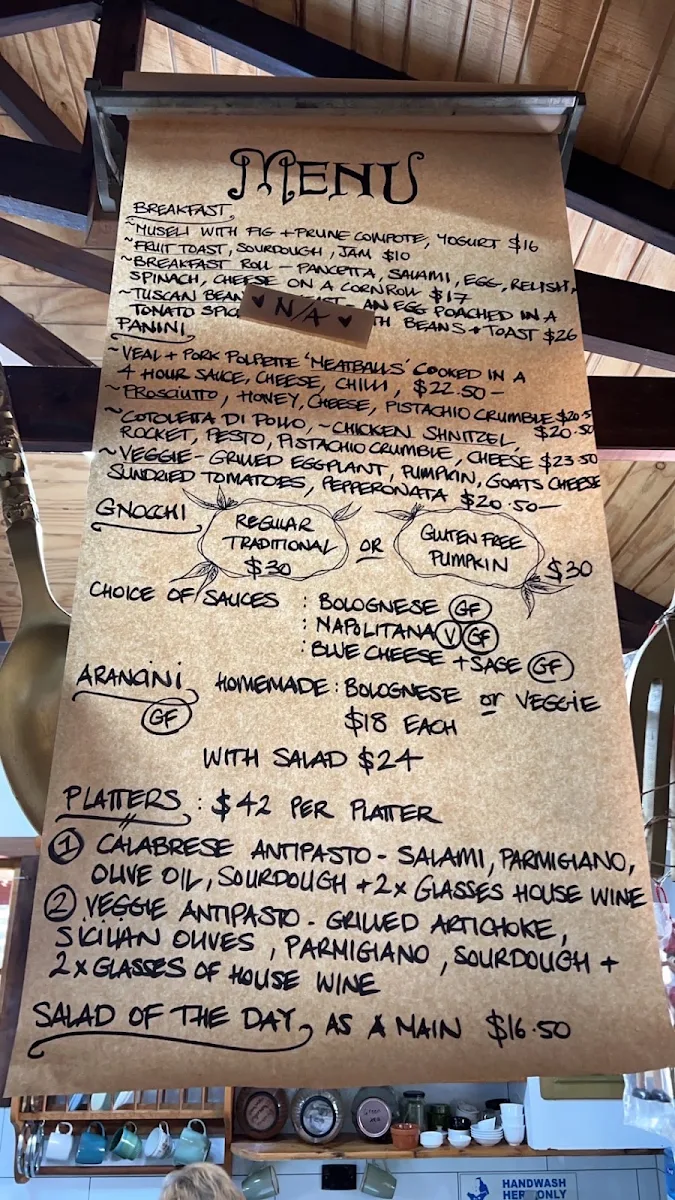 MENU
BREAKFAST
~MUSELI WITH FIG + PRUNE COMPOTE, YOGURT $16
~FRUIT TOAST, SOURDOUGH, JAM $10
~BREAKFAST ROLL - PANCETTA, SALAMI, EGG, RELISH,
SPINACH, CHEESE ON A CORNROLL $17
~TUSCAN BEAN AN EGG POACHED IN A
♥ N/A ♥
TOMATO BEANS + TOAST $26
PANINI
~VEAL + PORK POLPETTE 'MEATBALLS' COOKED IN A
4 HOUR SAUCE, CHEESE, CHILLI, $22.50-
~PROSCIUTTO, HONEY, CHEESE, PISTACHIO CRUMBLE $20.5
~COTOLETTA DI POLLO, ~CHICKEN SHNITZEL, $20.50
ROCKET, PESTO, PISTACHIO CRUMBLE, CHEESE $23.50
~VEGGIE- GRILLED EGGPLANT, PUMPKIN, GOATS CHEESE
SUNDRIED TOMATOES, PEPPERONATA $20.50-
GNOCCHI
REGULAR
TRADITIONAL
$30
OR
GLUTEN FREE
PUMPKIN
$30
CHOICE OF SAUCES : BOLOGNESE GF
: NAPOLITANA V GF
: BLUE CHEESE + SAGE GF
ARANCINI HOMEMADE : BOLOGNESE or VEGGIE
GF $18 EACH
WITH SALAD $24
PLATTERS : $42 PER PLATTER
1 CALABRESE ANTIPASTO - SALAMI, PARMIGIANO,
OLIVE OIL, SOURDOUGH + 2x GLASSES HOUSE WINE
2 VEGGIE ANTIPASTO - GRILLED ARTICHOKE,
SICILIAN OLIVES, PARMIGIANO, SOURDOUGH +
2x GLASSES OF HOUSE WINE
SALAD OF THE DAY, AS A MAIN $16.50
HANDWASH
HERE ONLY